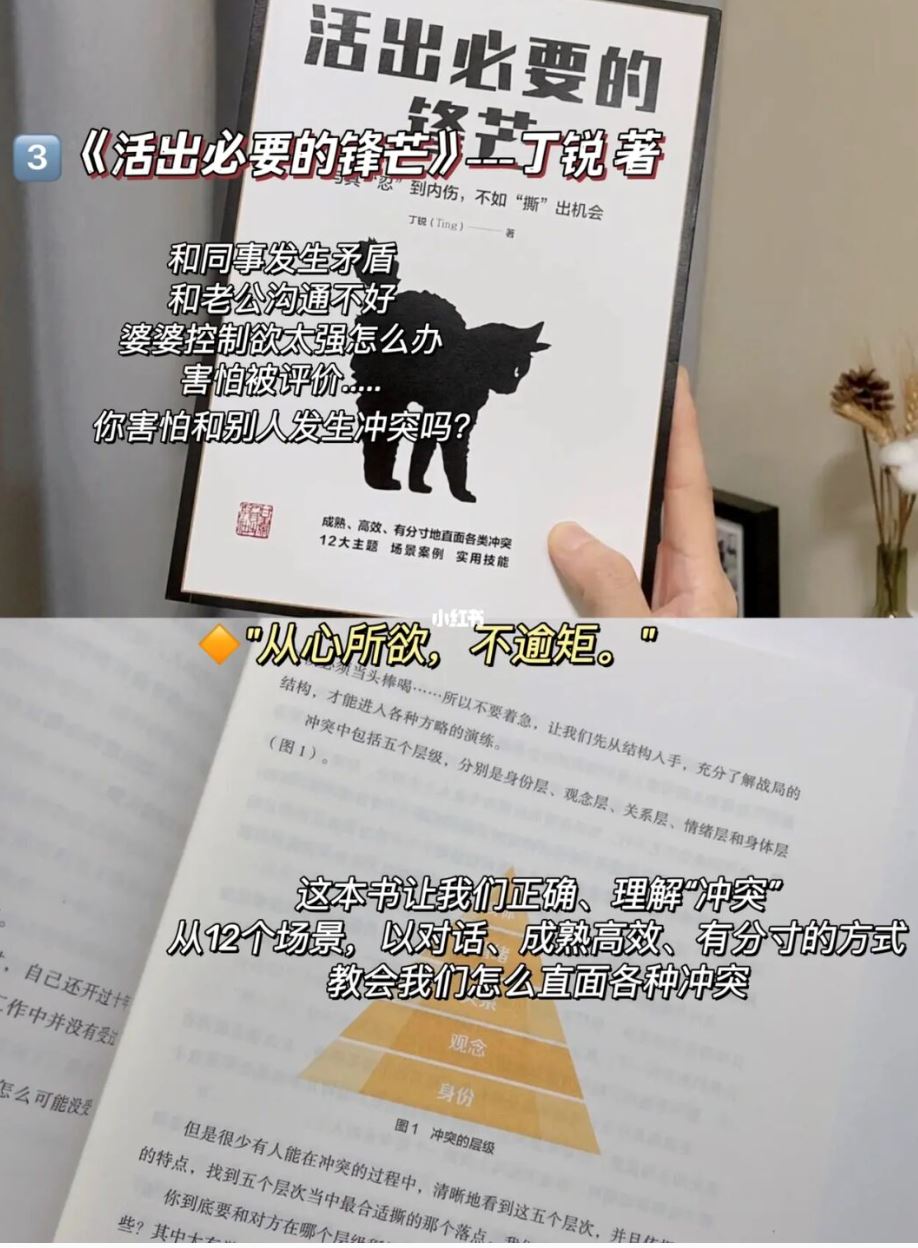 活出必要的
锋芒
3 《活出必要的锋芒》---丁锐 著
与其“忍”到内伤，不如“撕”出机会
丁锐（Ting）—— 著
和同事发生矛盾
和老公沟通不好
婆婆控制欲太强怎么办
害怕被评价.....
你害怕和别人发生冲突吗？
成熟、高效、有分寸地直面各类冲突
12大主题 场景案例 实用技能
小红书
"从心所欲，不逾矩。"
必须当头棒喝……所以不要着急，让我们先从结构入手，充分了解战局的
结构，才能进入各种方略的演练。
冲突中包括五个层级，分别是身份层、观念层、关系层、情绪层和身体层
（图1）。
这本书让我们正确、理解“冲突”
从12个场景，以对话、成熟高效、有分寸的方式
教会我们怎么直面各种冲突
观念
身份
图1 冲突的层级
自己还开过十年
工作中并没有受过
怎么可能没受
但是很少有人能在冲突的过程中，清晰地看到这五个层次，并且依据
的特点，找到五个层次当中最合适撕的那个落点。我们
你到底要和对方在哪个层级
些？其中大有